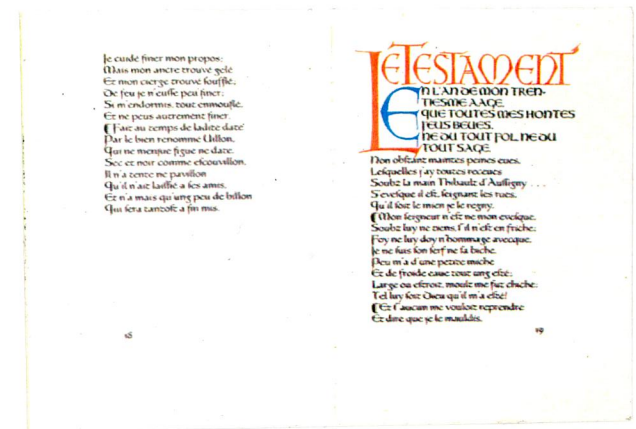 Je cuidé finer mon propos;
Mais mon ancre trouvé gelé
Et mon cierge trouvé soufflé;
De feu je n'eusse peu finer;
Si m'endormis, tout enmouflé,
Et ne peus autrement finer.
Fait au temps de ladite date
Par le bien renommé Uillon,
Qui ne menjue figue ne date.
Sec et noir comme escouvillon,
Il n'a tente ne pavillon
Qu'il n'ait laissié a ses amis,
Et n'a mais qu'ung peu de billon
Qui sera tantost a fin mis.
18
LE TESTAMENT
EN L'AN DE MON TREN-
TIESME AAGE,
QUE TOUTES MES HONTES
J'EUS BEUES,
NE DU TOUT FOL, NE DU
TOUT SAGE,
Non obstant maintes peines eues,
Lesquelles j'ay toutes receues
Soubz la main Thibault d'Aussigny . . .
S'evesque il est, seignant les rues,
Qu'il soit le mien je le regny.
Mon seigneur n'est ne mon evesque,
Soubz luy ne tiens, s'il n'est en friche;
Foy ne luy doy n'hommage avecque,
Je ne suis son serf ne sa biche.
Peu m'a d'une petite miche
Et de froide eaue tout ung esté;
Large ou estroit, moult me fut chiche;
Tel luy soit Dieu qu'il m'a esté!
Et s'aucun me vouloit reprendre
Et dire que je le mauldis,
19